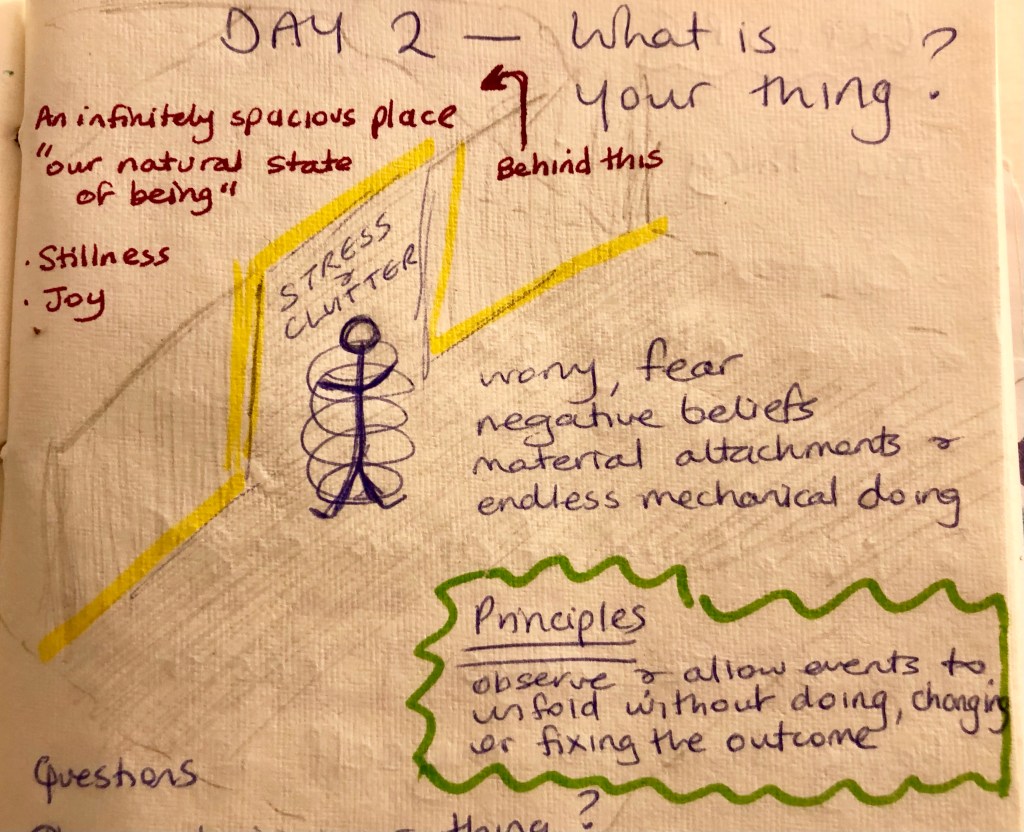 DAY 2 — What is
your thing?
An infinitely spacious place
"our natural state
of being"
Behind this
· Stillness
· Joy
STRESS
&
CLUTTER
worry, fear
negative beliefs
material attachments &
endless mechanical doing
Principles
observe & allow events to
unfold without doing, changing
or fixing the outcome
Questions
thing?